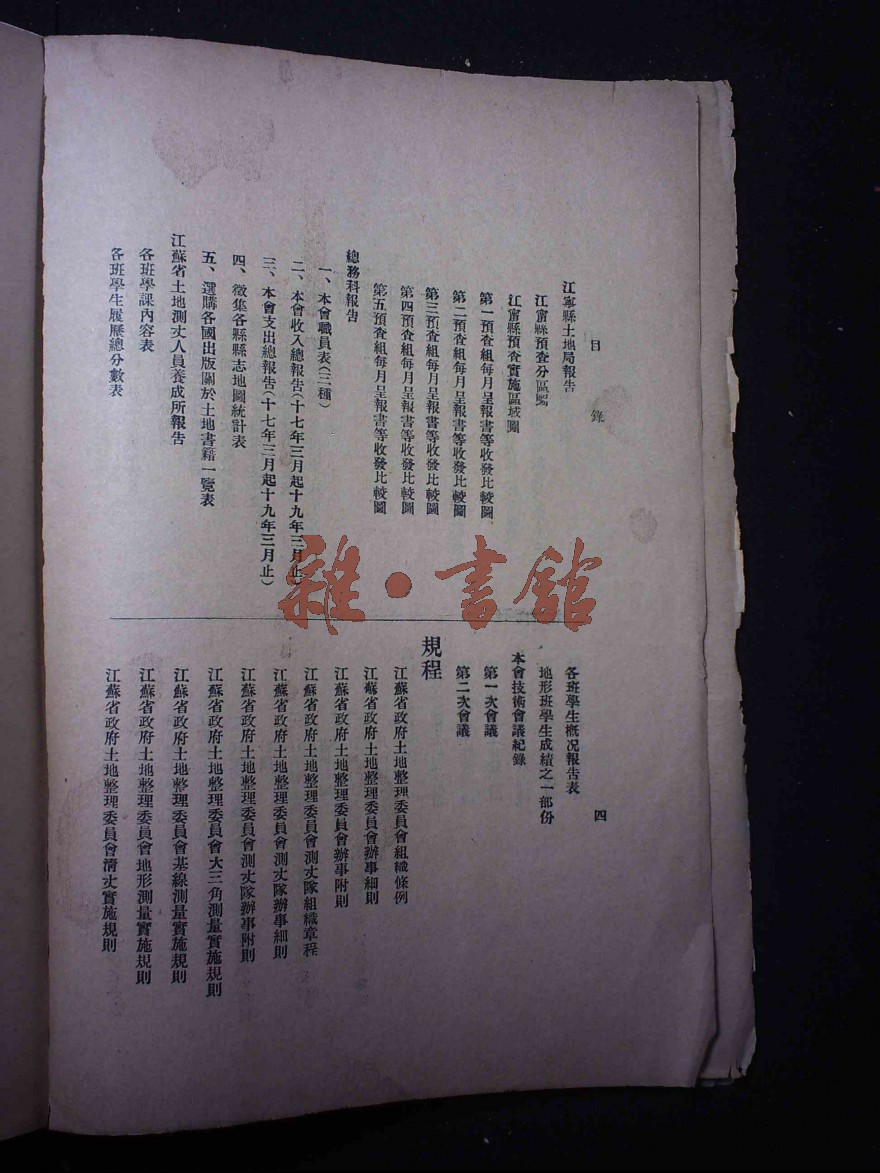 目錄
四
江寧縣土地局報告
江甯縣預查分區圖
江甯縣預查實施區域圖
第一預查組每月呈報書等收發比較圖
第二預查組每月呈報書等收發比較圖
第三預查組每月呈報書等收發比較圖
第四預查組每月呈報書等收發比較圖
第五預查組每月呈報書等收發比較圖
總務科報告
一、本會職員表(三種)
二、本會收入總報告(十七年三月起十九年三月止)
三、本會支出總報告(十七年三月起十九年三月止)
四、徵集各縣縣志地圖統計表
五、選購各國出版關於土地書籍一覽表
江蘇省土地測丈人員養成所報告
各班學課內容表
各班學生履歷總分數表
各班學生概况報告表
地形班學生成績之一部份
本會技術會議紀錄
第一次會議
第二次會議
規程
江蘇省政府土地整理委員會組織條例
江蘇省政府土地整理委員會辦事細則
江蘇省政府土地整理委員會辦事附則
江蘇省政府土地整理委員會測丈隊組織章程
江蘇省政府土地整理委員會測丈隊辦事細則
江蘇省政府土地整理委員會測丈隊辦事附則
江蘇省政府土地整理委員會大三角測量實施規則
江蘇省政府土地整理委員會基線測量實施規則
江蘇省政府土地整理委員會地形測量實施規則
江蘇省政府土地整理委員會清丈實施規則
雜·書館